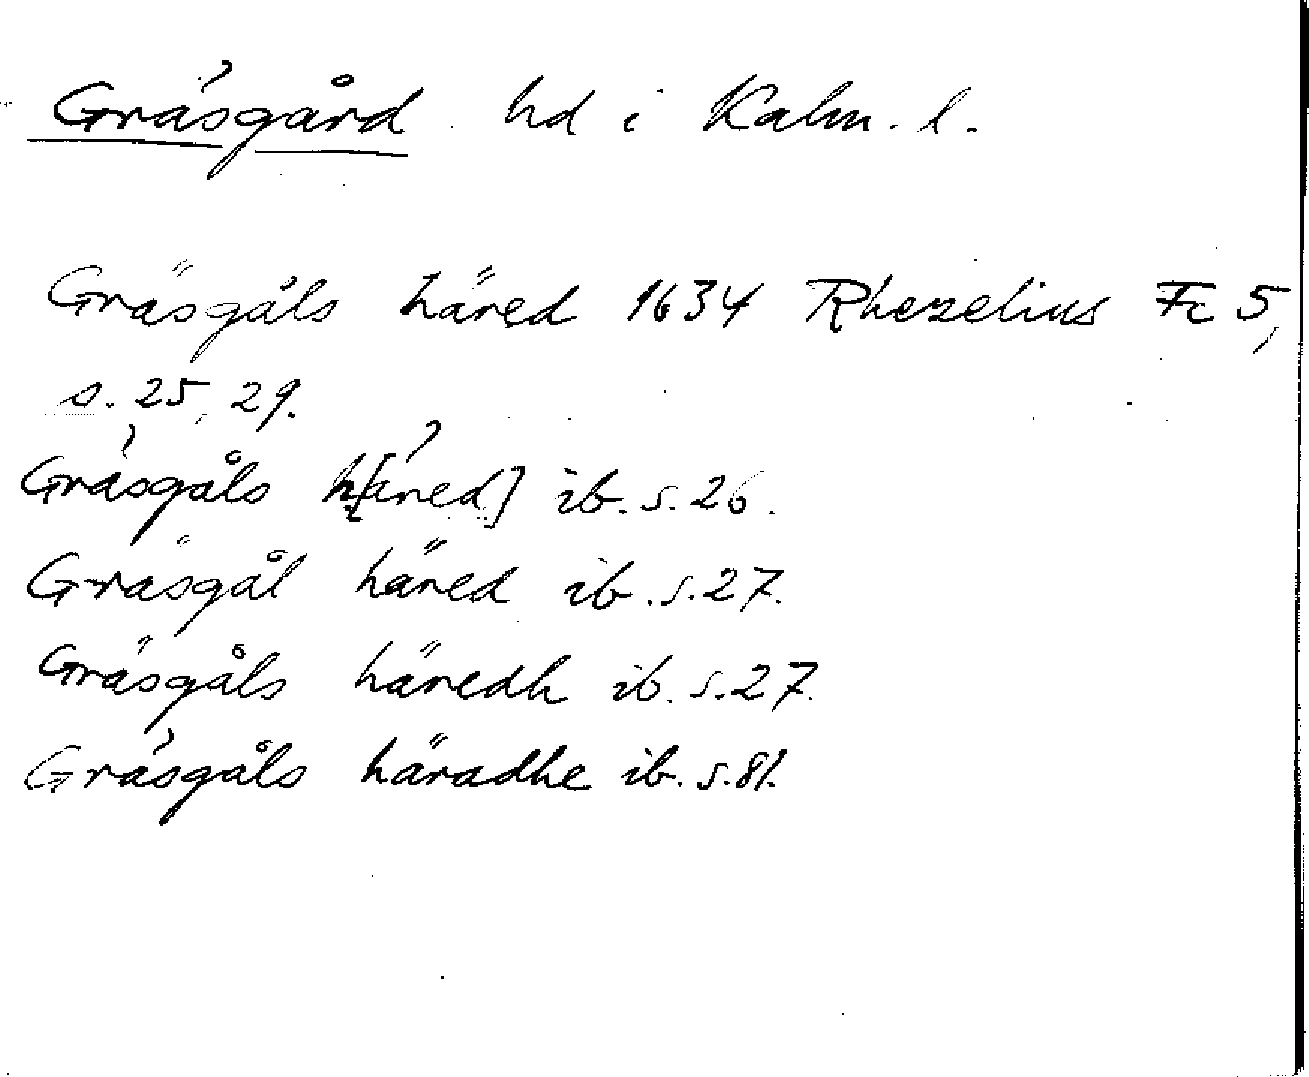 Gräsgård hd i Kalm. l.
Gräsgåls häred 1634 Rhezelius Fc 5,
s. 25, 29.
Gräsgåls h[äred] ib. s. 26.
Gräsgål häred ib. s. 27.
Gräsgåls häredh ib. s. 27.
Gräsgåls häradhe ib. s. 81.